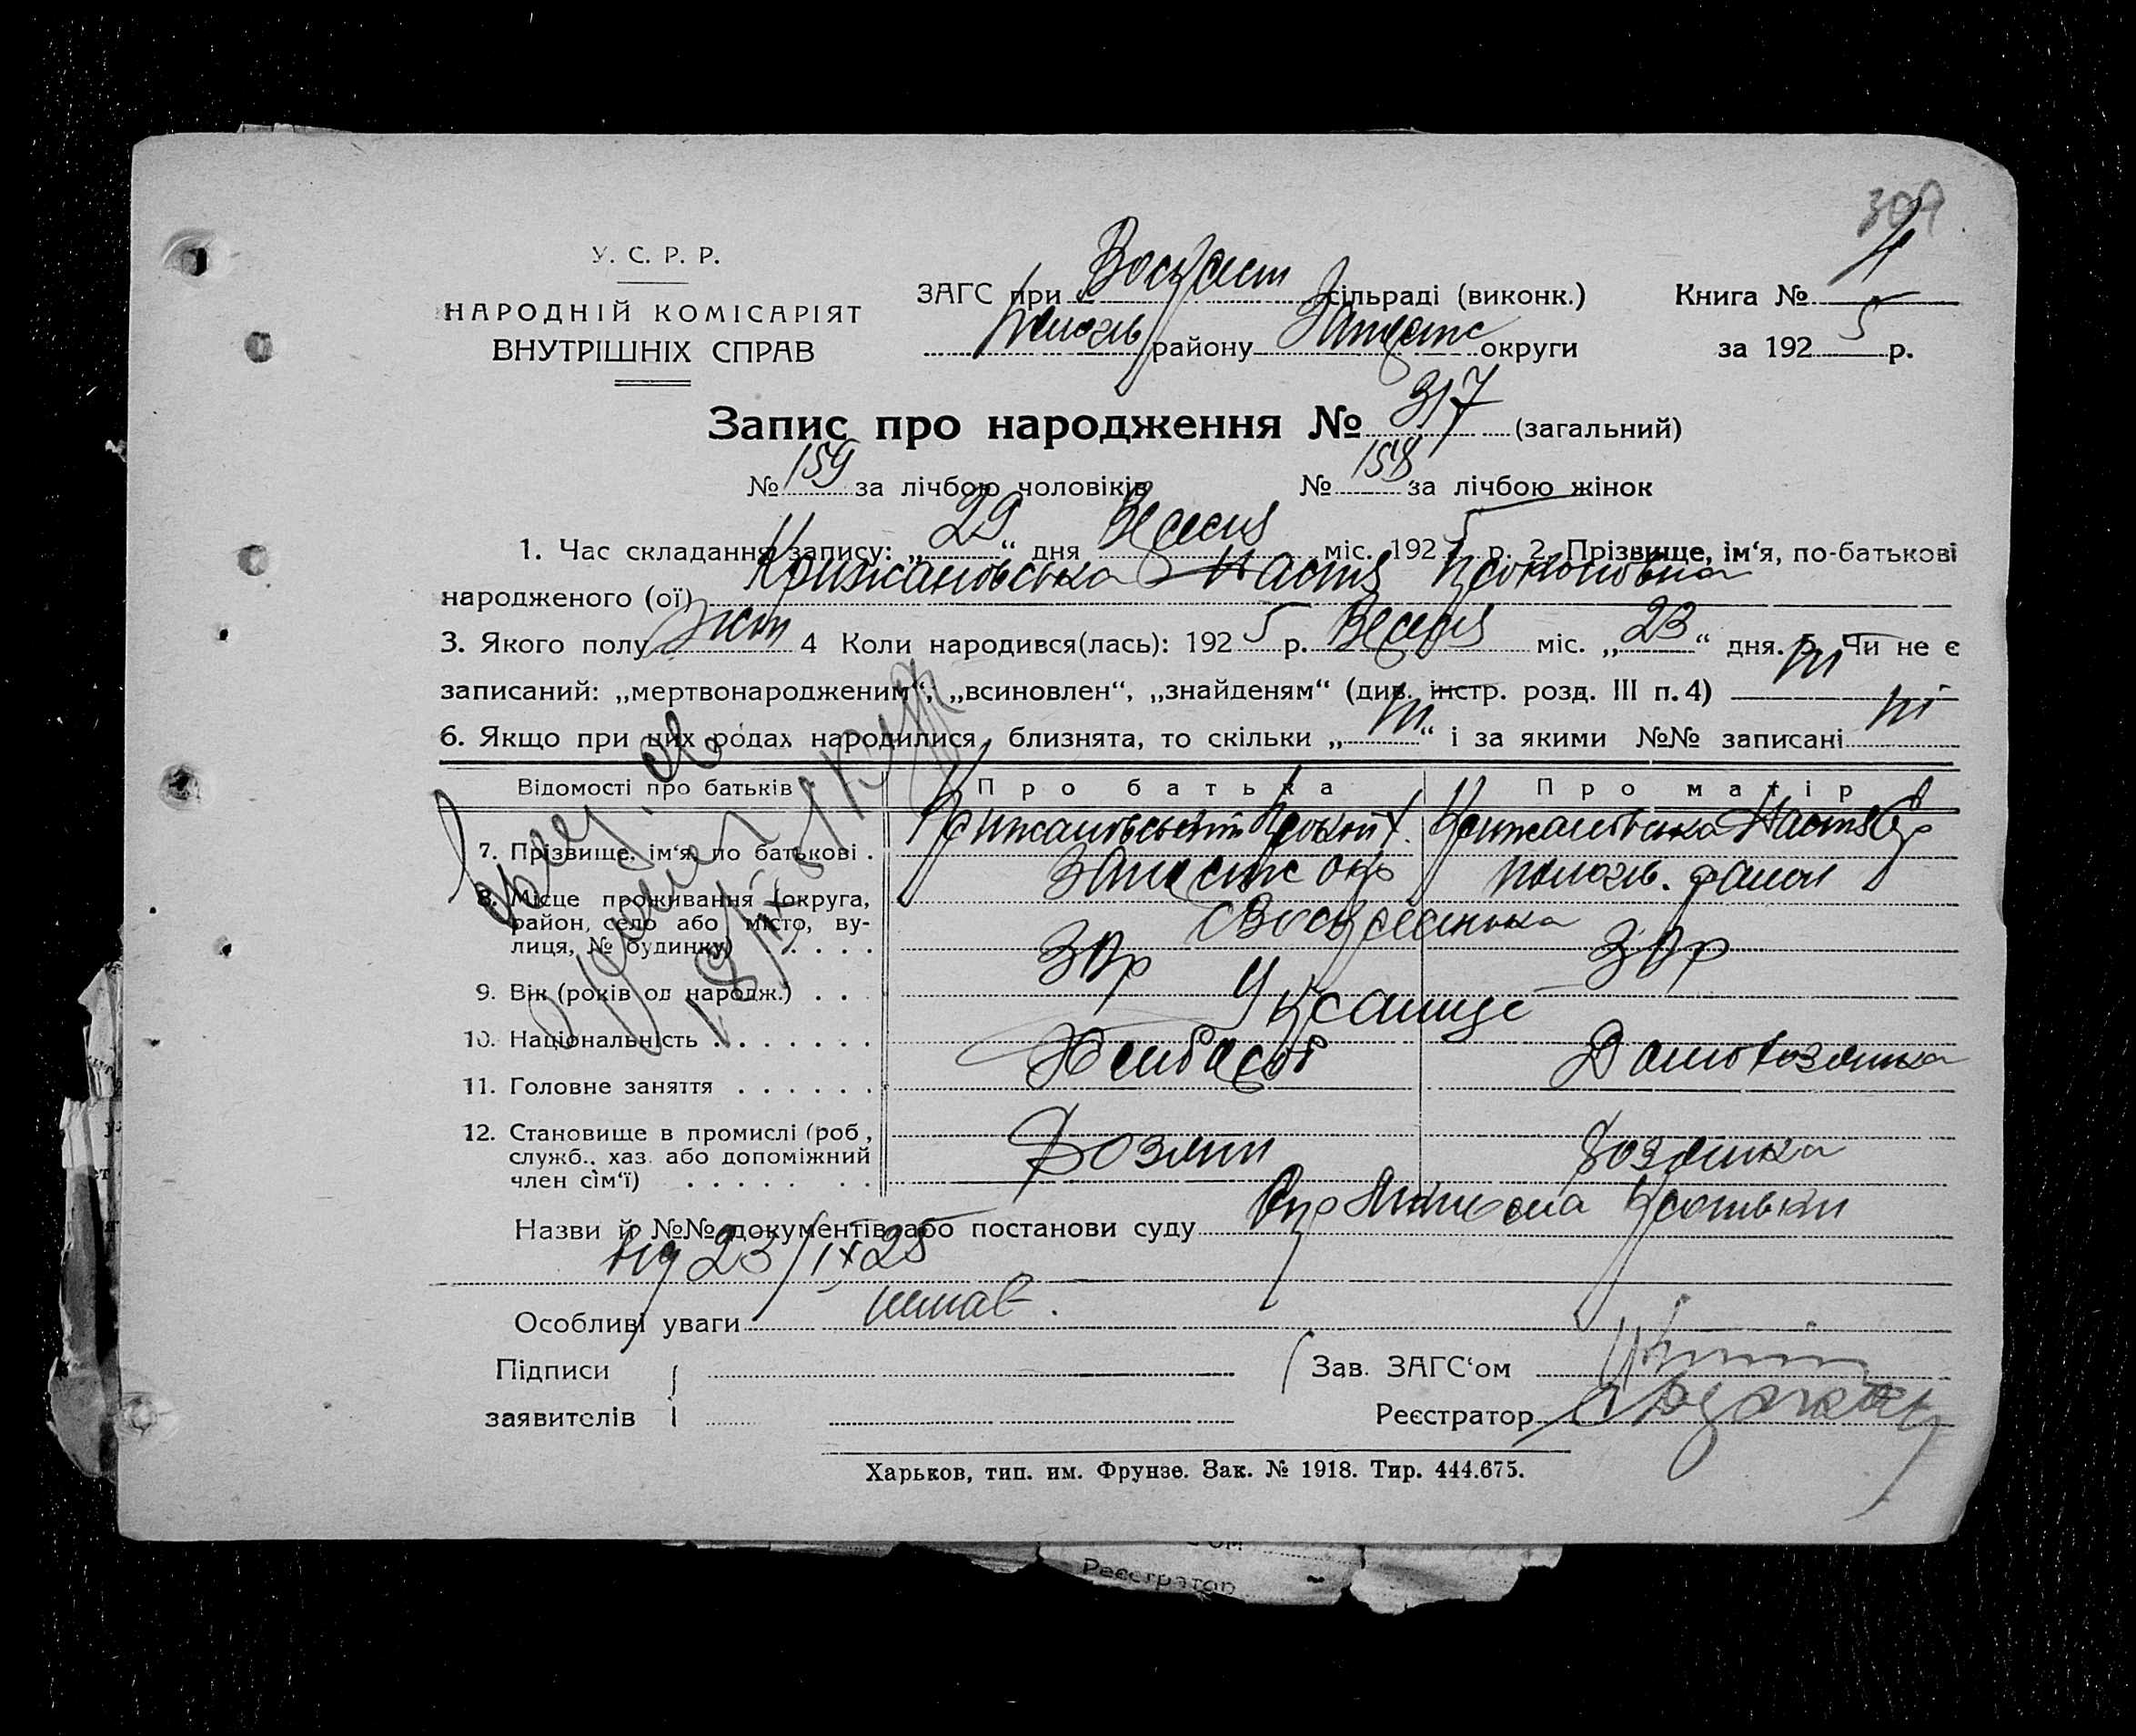 309
У. С. Р. Р.
НАРОДНІЙ КОМІСАРІЯТ
ВНУТРІШНІХ СПРАВ
ЗАГС при сільраді (виконк.)
Книга №
району округи
за 1925 р.
Запис про народження № 317 (загальний)
№ 159 за лічбою чоловіків № 158 за лічбою жінок
1. Час складання запису: „29“ дня міс. 1925 р. 2. Прізвище, ім‘я, по-батькові
народженого (ої) Крижановська Настя Прокоповна
3. Якого полу жін 4 Коли народився(лась): 1925 р. міс. „23“ дня. 5. Чи не є
записаний: „мертвонародженим“, „всиновлен“, „знайденям“ (див. інстр. розд. III п. 4) ні
6. Якщо при цих родах народилися близнята, то скільки „ні“ і за якими №№ записані ні
Відомості про батьків Про батька Про матір
7. Прізвище, ім‘я, по батькові . Крижановський Прокіп Крижановська Настя
8. Місце проживання (округа,
район, село або місто, ву-
лиця, № будинку) . . . .
9. Вік (років од народж.) . . . 30р 30р
10. Національність . . . . . . . Українці
11. Головне заняття . . . . . . Хлібороб Домохозяйка
12. Становище в промислі (роб.,
служб., хаз. або допоміжний
член сім‘ї) . . . . . . . Хозяин хозяйка
Назви й №№ документів або постанови суду
від 23/IX 25
Особливі уваги немає.
Підписи
заявителів
Зав. ЗАГС‘ом
Реєстратор
Харьков, тип. им. Фрунзе. Зак. № 1918. Тир. 444.675.
Реєстратор